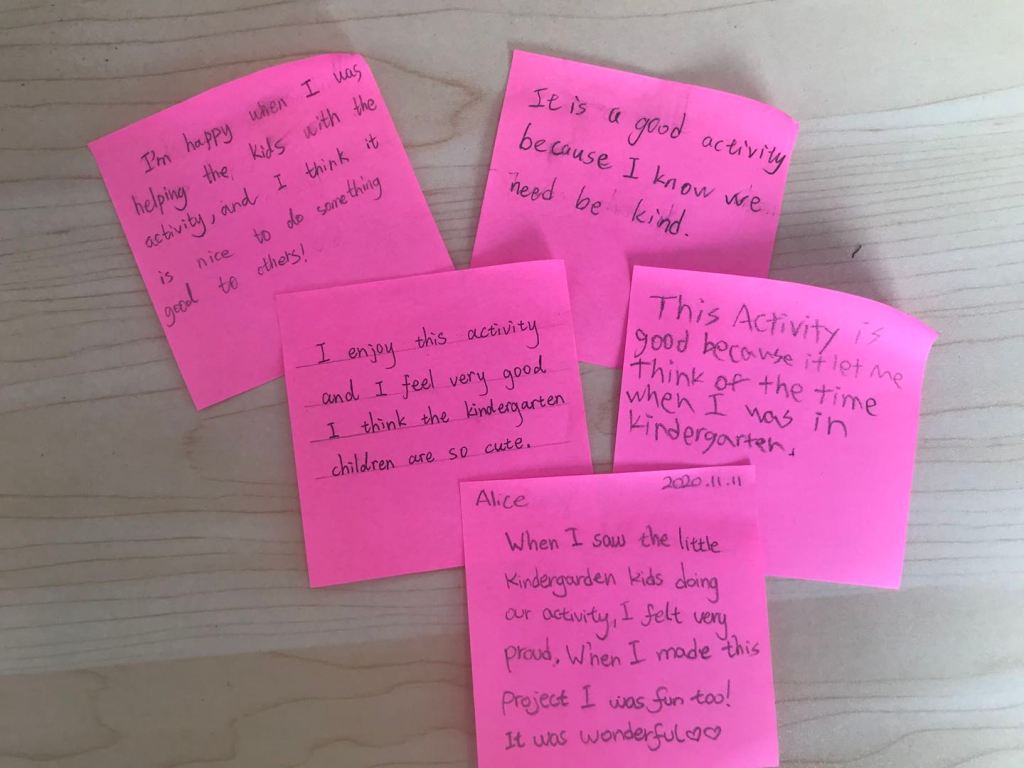 I'm happy when I was
helping the kids with the
activity, and I think it
is nice to do something
good to others!
It is a good activity
because I know we
need be kind.
I enjoy this activity
and I feel very good
I think the kindergarten
children are so cute.
This Activity is
good because it let me
think of the time
when I was in
kindergarten.
Alice 2020.11.11
When I saw the little
kindergarden kids doing
our activity, I felt very
proud. When I made this
project I was fun too!
It was wonderful♡♡